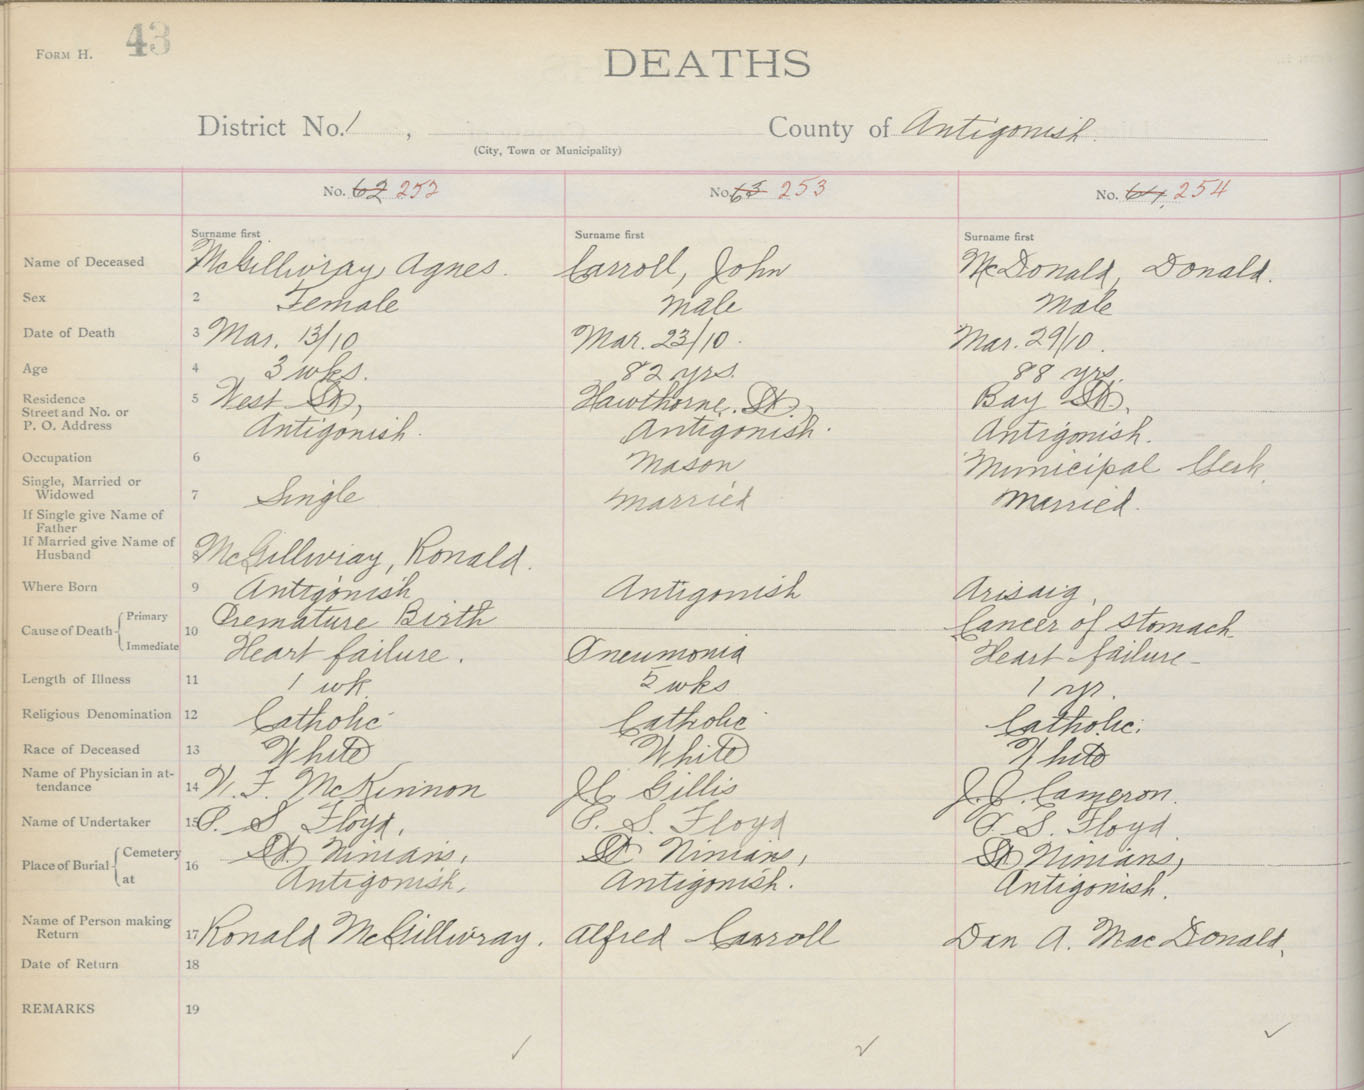 FORM H. 43
DEATHS
District No. 1, County of Antigonish.
(City, Town or Municipality)
No. 62 252 No. 63 253 No. 64, 254
Surname first Surname first Surname first
Name of Deceased McGillivray, Agnes. Carroll, John McDonald, Donald.
Sex 2 Female Male Male
Date of Death 3 Mar. 13/10 Mar. 23/10. Mar. 29/10.
Age 4 3 wks. 82 yrs. 88 yrs.
Residence 5 West St, Hawthorne. St, Bay St,
Street and No. or
P. O. Address Antigonish. Antigonish. Antigonish.
Occupation 6 Mason Municipal Clerk,
Single, Married or
Widowed 7 Single Married Married.
If Single give Name of
Father
If Married give Name of
Husband 8 McGillivray, Ronald.
Where Born 9 Antigonish Antigonish Arisaig,
Cause of Death 10 Primary Premature Birth Cancer of Stomach
Immediate Heart failure. Pneumonia Heart failure-
Length of Illness 11 1 wk 5 wks 1 yr.
Religious Denomination 12 Catholic Catholic Catholic.
Race of Deceased 13 White White White
Name of Physician in at-
tendance 14 W. F. McKinnon J C Gillis J. J. Cameron.
Name of Undertaker 15 P. S. Floyd, P. S. Floyd P. S. Floyd.
Place of Burial 16 Cemetery St. Ninians, St Ninians, St Ninians,
at Antigonish, Antigonish. Antigonish.
Name of Person making
Return 17 Ronald McGillivray. Alfred Carroll Dan A. MacDonald,
Date of Return 18
REMARKS 19